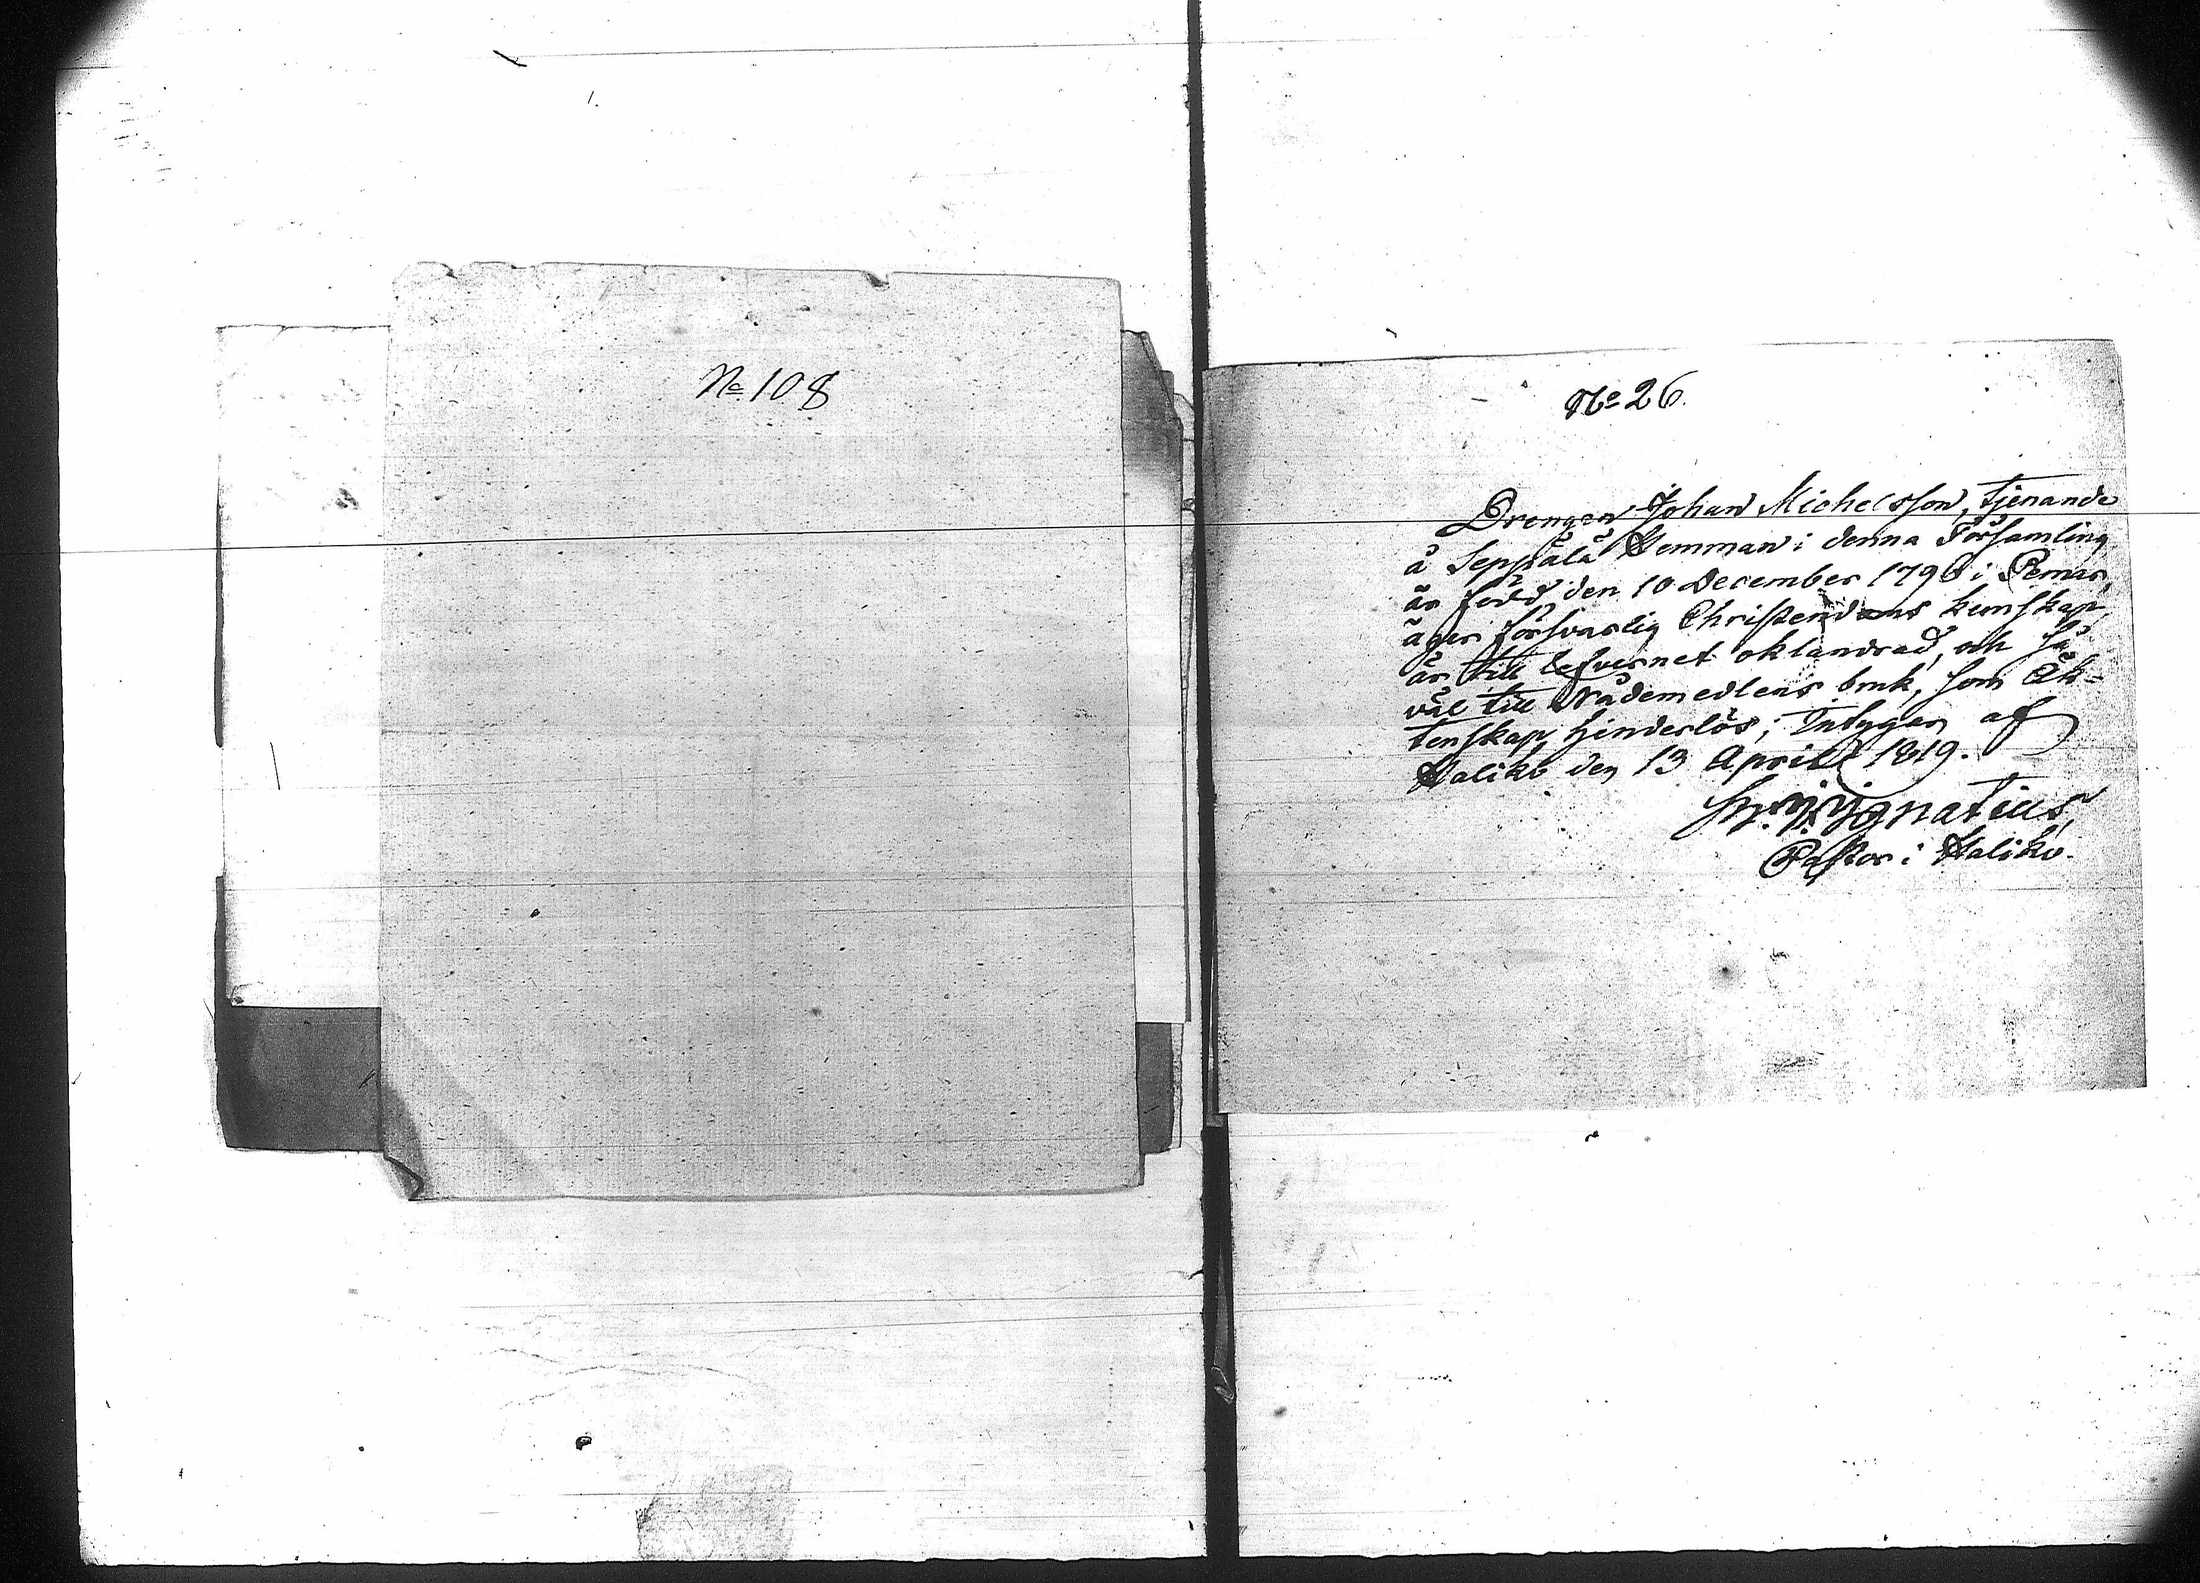 No 108
No 26.
Drengen Johan Michelsson, tjenande
å Seppälä Hemman i denna Församling
är född den 10 December 1796 i Pemar,
äger försvarlig Christendoms kunskap,
är till lefvernet oklandrad, och så
väl till Nådemedlens bruk, som Äk-
tenskap hinderlös; Intygar af
Haliko den 13 April 1819.
Ignatius,
Pastor i Haliko.